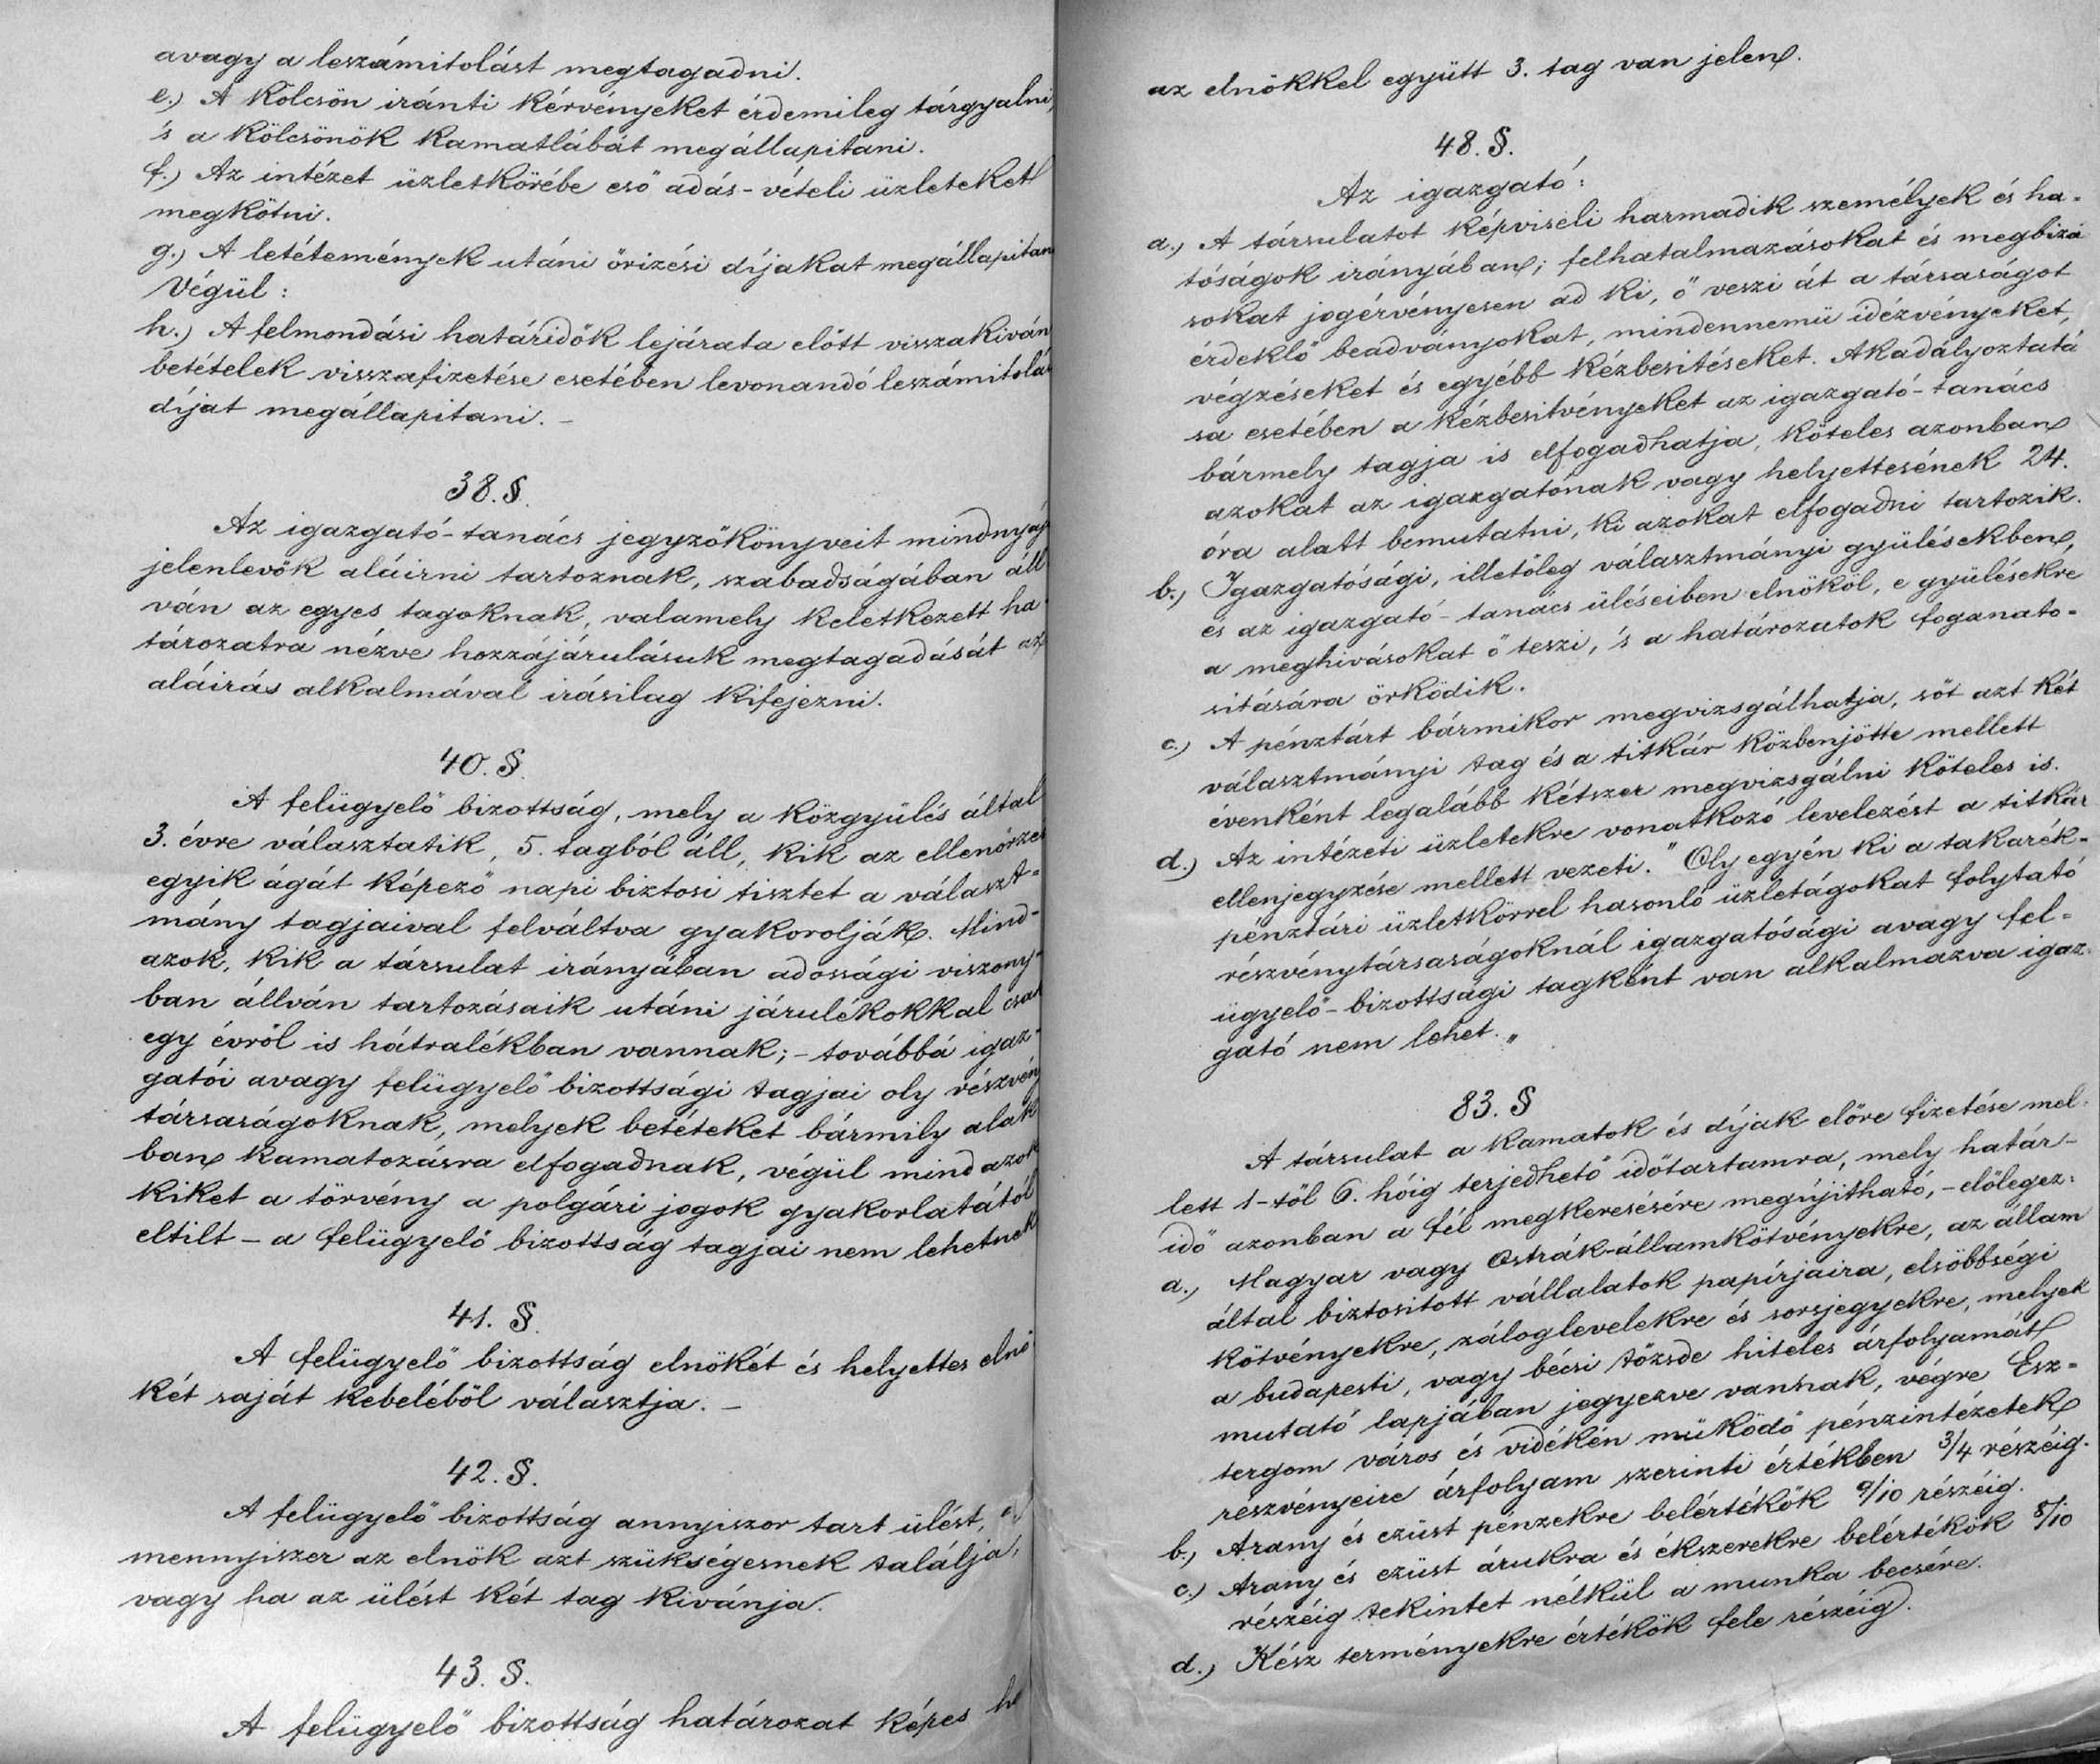 avagy a leszámitolást megtagadni.
e.) A kölcsön iránti kérvényeket érdemileg tárgyalni,
's a kölcsönök kamatlábát megállapitani.
f.) Az intézet üzletkörébe eső adás-vételi üzleteket
megkötni.
g.) A letétemények utáni őrizési díjakat megállapitan
Végül:
h.) A felmondási határidők lejárata előtt visszakiván
betételek visszafizetése esetében levonandó leszámitolá
díjat megállapitani. –
38. §.
Az igazgató-tanács jegyzőkönyveit mindnyáj
jelenlevők aláirni tartoznak, szabadságában áll
ván az egyes tagoknak, valamely keletkezett ha
tározatra nézve hozzájárulásuk megtagadását az
aláirás alkalmával irásilag kifejezni.
40. §.
A felügyelő bizottság, mely a közgyülés által
3. évre választatik, 5. tagból áll, kik az ellenőrzés
egyik ágát képező napi biztosi tisztet a választ-
mány tagjaival felváltva gyakorolják. Mind-
azok, kik a társulat irányában adossági viszony-
ban állván tartozásaik utáni járulékokkal csak
egy évről is hátralékban vannak; – továbbá igaz-
gatói avagy felügyelő bizottsági tagjai oly részvén
társaságoknak, melyek betéteket bármily alak
ban kamatozásra elfogadnak, végül mind azok
kiket a törvény a polgári jogok gyakorlatától
eltilt – a felügyelő bizottság tagjai nem lehetnek
41. §.
A felügyelő bizottság elnökét és helyettes elnö
két saját kebeléből választja. –
42. §.
A felügyelő bizottság annyiszor tart ülést, a
mennyiszer az elnök azt szükségesnek találja,
vagy ha az ülést két tag kivánja.
43. §.
A felügyelő bizottság határozat képes ha
az elnökkel együtt 3. tag van jelen.
48. §.
Az igazgató:
a.) A társulatot képviseli harmadik személyek és ha-
tóságok irányában; felhatalmazásokat és megbizá
sokat jogérvényesen ad ki, ő veszi át a társaságot
érdeklő beadványokat, mindennemü idézvényeket,
végzéseket és egyébb kézbesitéseket. Akadályoztatá
sa esetében a kézbesitvényeket az igazgató-tanács
bármely tagja is elfogadhatja, köteles azonban
azokat az igazgatónak vagy helyettesének 24.
óra alatt bemutatni, ki azokat elfogadni tartozik.
b.) Igazgatósági, illetőleg választmányi gyülésekben,
és az igazgató-tanács üléseiben elnököl, e gyülésekre
a meghivásokat ő teszi, 's a határozatok foganato-
sitására örködik.
c.) A pénztárt bármikor megvizsgálhatja, sőt azt két
választmányi tag és a titkár közbenjötte mellett
évenként legalább kétszer megvizsgálni köteles is.
d.) Az intézeti üzletekre vonatkozó levelezést a titkár
ellenjegyzése mellett vezeti. "Oly egyén ki a takarék-
pénztári üzletkörrel hasonló üzletágokat folytató
részvénytársaságoknál igazgatósági avagy fel-
ügyelő-bizottsági tagként van alkalmazva igaz-
gató nem lehet."
83. §
A társulat a kamatok és díjak előre fizetése mel-
lett 1-től 6. hóig terjedhető időtartamra, mely határ-
idő azonban a fél megkeresésére megújitható, – előlegez:
a.) Magyar vagy Ostrák-államkötvényekre, az állam
által biztositott vállalatok papírjaira, elsöbbségi
kötvényekre, záloglevelekre és sorsjegyekre, melyek
a budapesti, vagy bécsi tőzsde hiteles árfolyamát
mutató lapjában jegyezve vannak, végre Esz-
tergom város és vidékén müködő pénzintézetek
reszvényeire árfolyam szerinti értékben 3/4 részéig.
b.) Arany és ezüst pénzekre belértékök 9/10 részéig.
c.) Arany és ezüst árukra és ékszerekre belértékök 8/10
részéig tekintet nélkül a munka becsére.
d.) Kész terményekre értékök fele részéig.